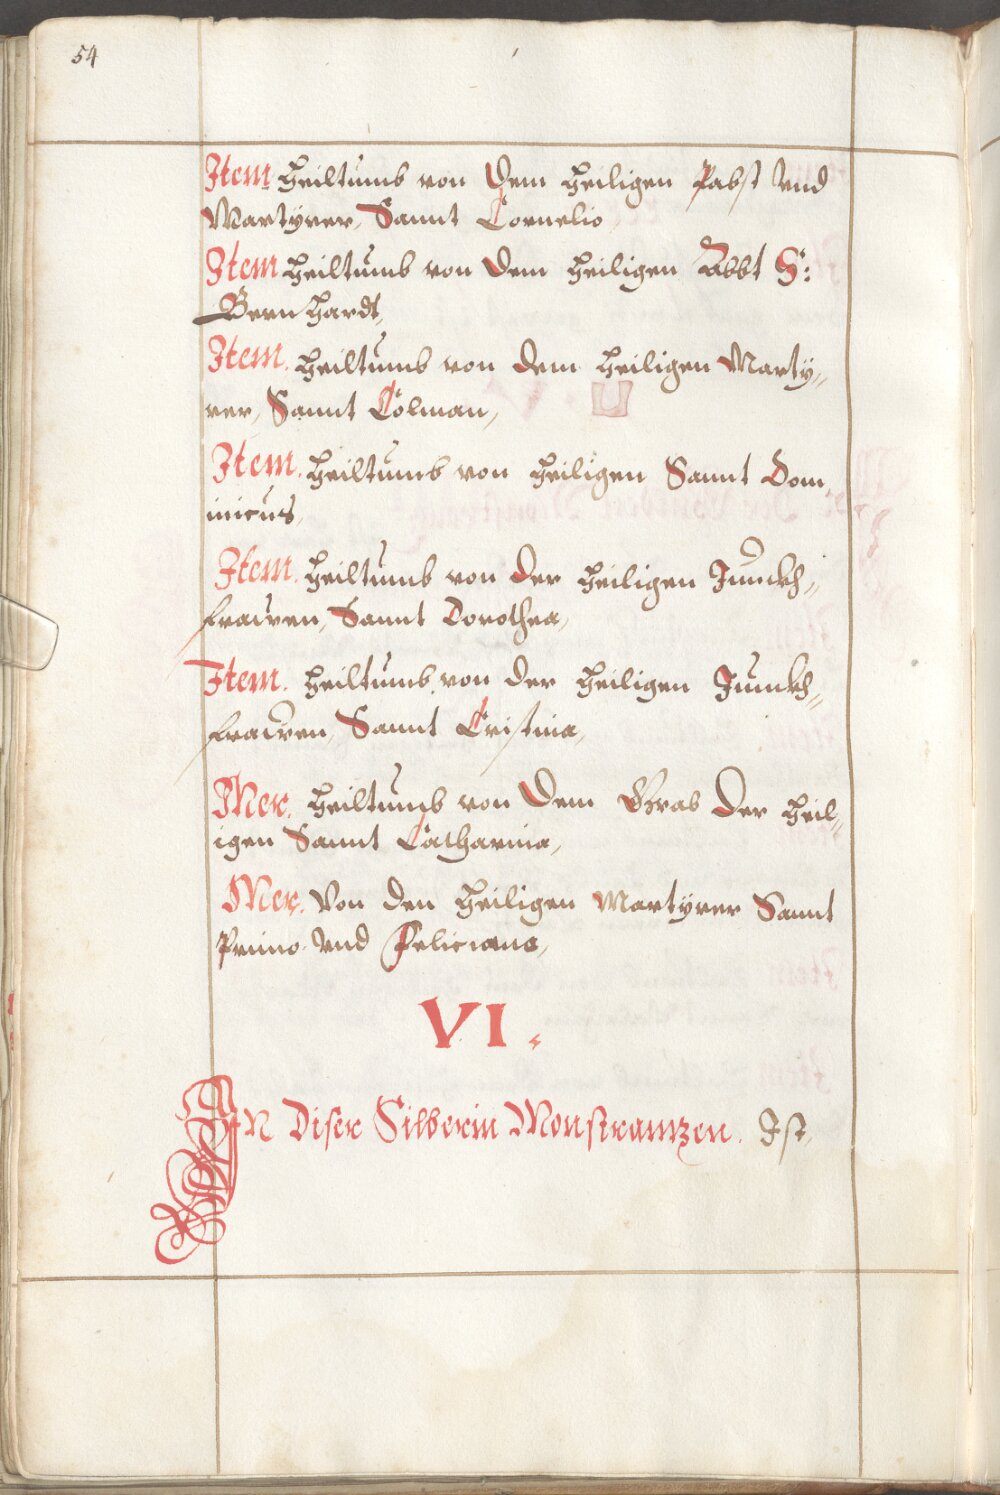 54
Item heiltumb von dem heiligen Pabst Vnd
Martÿrer, Sannt Cornelio
Item heiltumb von dem heiligen Abbt S:
Bernhardt,
Item. heiltumb von dem heiligen Martÿ,,
rer, Sannt Colman,
Item. heiltumb von heiligen Sannt Dom,
inicus,
Item. heiltumb von der heiligen Junckh,,
frawen, Sannt Dorothea,
Item. heiltumb von der heiligen Junckh,,
frawen, Sannt Cristina,
Mer. heiltumb von dem Grab der heil,,
igen Sannt Catharina,
Mer. Von den heiligen Martÿrer Sannt
Primo Vnd Feliciano,
VI.
IN Diser Silberin Monstrantzen. Ist,